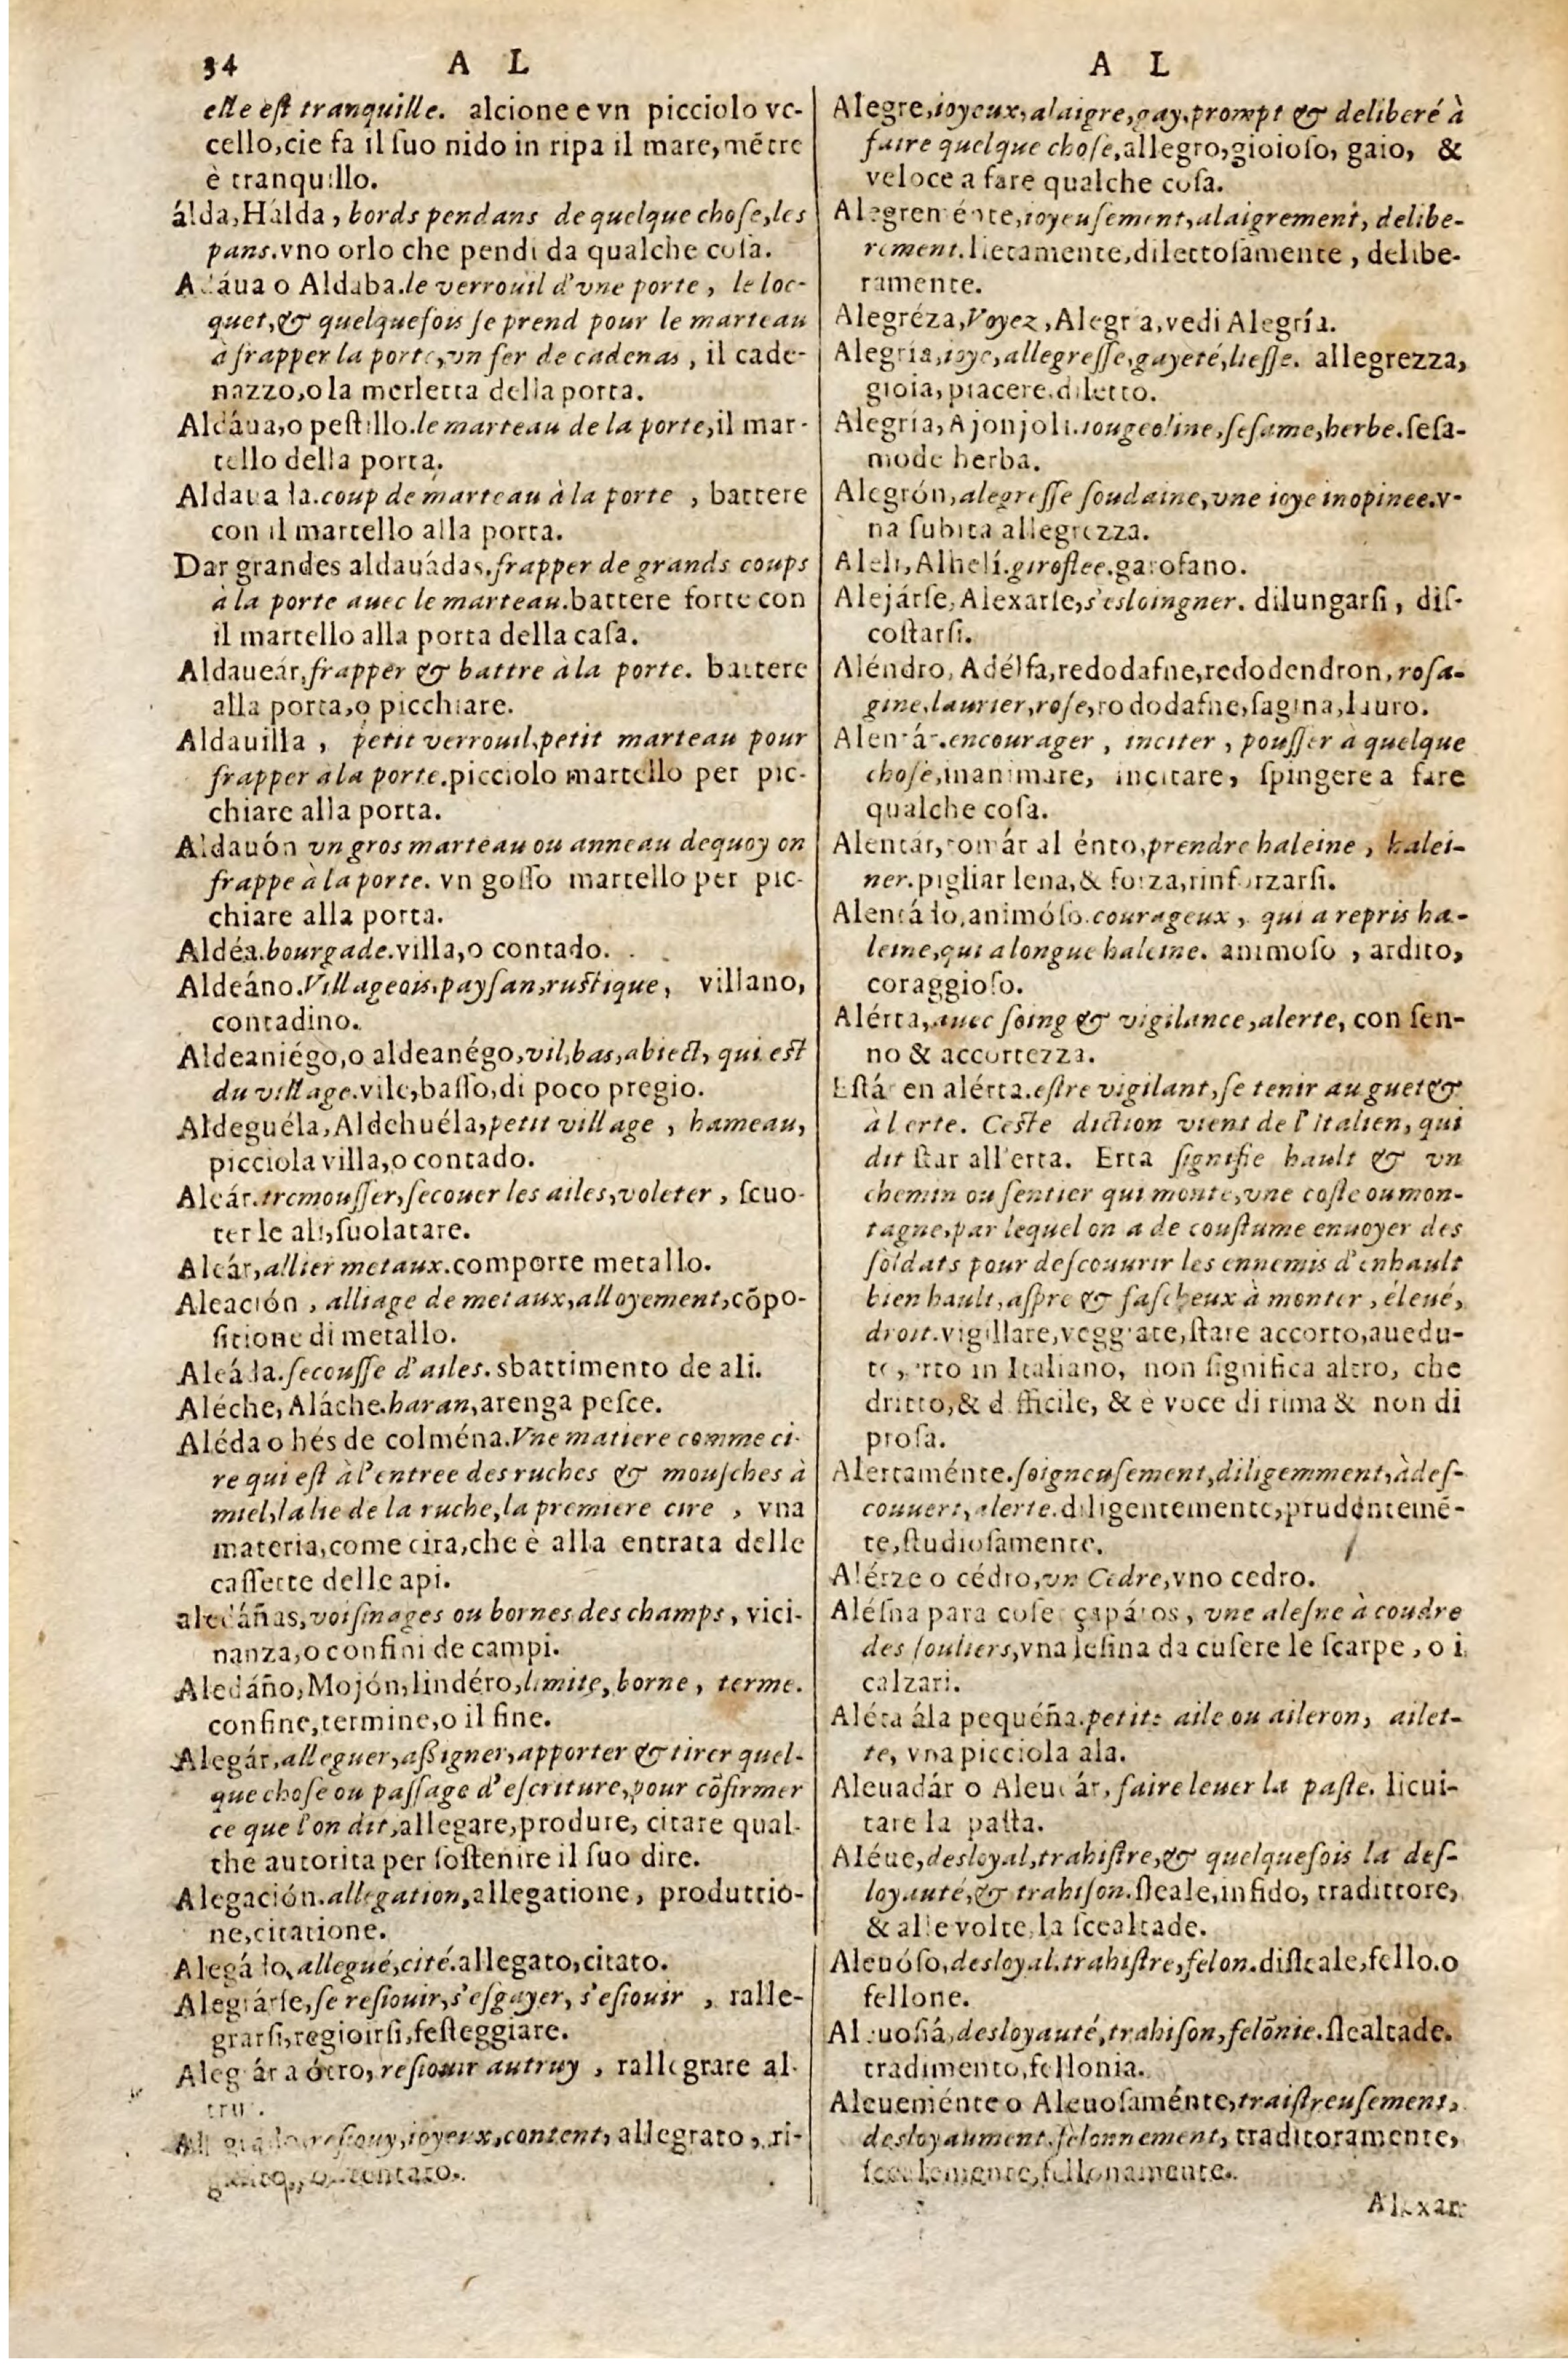 34
A L
elle est tranquille. alcione e vn picciolo vc-
cello,cie fa il ſuo nido in ripa il mare,mẽtre
è tranquillo.
álda,Hálda, bords pendans de quelque choſe,les
pans.vno orlo che pendi da qualche coſa.
Aldáua o Aldaba.le verrouil d'vne porte, le loc-
quet,& quelquefois ſe prend pour le marteau
à frapper la porte,vn fer de cadenas, il cade-
nazzo,o la merletta della porta.
Aldáua,o peſtillo.le marteau de la porte,il mar-
tello della porta.
Aldauada.coup de marteau à la porte, battere
con il martello alla porta.
Dar grandes aldauádas.frapper de grands coups
à la porte auec le marteau.battere forte con
il martello alla porta della caſa.
Aldaueár,frapper & battre à la porte. battere
alla porta,o picchiare.
Aldauilla, petit verrouil,petit marteau pour
frapper à la porte.picciolo martello per pic-
chiare alla porta.
Aldauón vn gros marteau ou anneau dequoy on
frappe à la porte. vn goſſo martello per pic-
chiare alla porta.
Aldéa.bourgade.villa,o contado.
Aldeáno.Villageois.payſan,ruſtique, villano,
contadino.
Aldeaniégo,o aldeanégo,vil,bas,abiect, qui eſt
du village.vile,baſſo,di poco pregio.
Aldeguéla,Aldehuéla,petit village, hameau,
picciola villa,o contado.
Aleár.tremouſſer,ſecouer les ailes,voleter, ſcuo-
ter le ali,ſuolatare.
Aleár,allier metaux.comporre metallo.
Aleación, alliage de metaux,alloyement,cõpo-
ſitione di metallo.
Aleáda.ſecouſſe d'ailes.sbattimento de ali.
Aléche, Aláche.haran,arenga peſce.
Aléda o hés de colména.Vne matiere comme ci-
re qui eſt à l'entree des ruches & mouſches à
miel,la lie de la ruche,la premiere cire, vna
materia,come cira,che è alla entrata delle
caſſette delle api.
aledáñas,voiſinages ou bornes des champs, vici-
nanza,o confini de campi.
Aledáño,Mojón,lindéro,limite, borne, terme.
confine,termine,o il fine.
Alegár,alleguer,aſſigner,apporter & tirer quel-
que choſe ou paſſage d'eſcriture,pour cõfirmer
ce que l'on dit,allegare,produre, citare qual-
the autorita per ſoſtenire il ſuo dire.
Alegación.allegation,allegatione, produttio-
ne,citatione.
Alegádo,allegué,cité.allegato,citato.
Alegrárſe,ſe reſiouir,s'eſgayer, s'eſiouir, ralle-
grarſi,regioirſi,feſteggiare.
Alegrár a ótro,reſiouir autruy, rallegrare al-
trui.
reſiouy,ioyeux,content, allegrato, ri-
A L
Alegre,ioyeux,alaigre,gay,prompt & deliberé à
faire quelque choſe,allegro,gioioſo, gaio, &
veloce a fare qualche coſa.
Alegreménte,ioyeuſement,alaigrement, delibe-
rement.lietamente,dilettoſamente, delibe-
ramente.
Alegréza,Voyez,Alegria,vedi Alegría.
Alegría,ioye,allegreſſe,gayeté,lieſſe. allegrezza,
gioia, piacere.diletto.
Alegría, Ajonjoli.iougeoline,ſeſame,herbe.ſeſa-
mode herba.
Alegrón,alegreſſe ſoudaine,vne ioye inopinee.v-
na ſubita allegrezza.
Aleli, Alhelí.girofleé.garofano.
Alejárſe, Alexarſe,s'esloingner. dilungarſi, diſ-
coſtarſi.
Aléndro, Adélfa,redodafne,redodendron,roſa-
gine,laurier,roſe,rododafne,ſagina,lauro.
Alentár.encourager, inciter, pouſſer à quelque
choſe,inanimare, incitare, ſpingere a fare
qualche coſa.
Alentár,tomár aliénto,prendre haleine, halei-
ner.pigliar lena,& forza,rinforzarſi.
Alentádo,animóſo.courageux, qui a repris ha-
leine,qui a longue haleine. animoſo, ardito,
coraggioſo.
Alérta,auec ſoing & vigilance,alerte, con ſen-
no & accortezza.
Eſtár en alérta.eſtre vigilant,ſe tenir au guet &
à l'erte. Ceſte diction vient de l'Italien, qui
dit ſtar all'erta. Erta ſignifie hault & vn
chemin ou ſentier qui monte,vne coſte ou mon-
tagne,par lequel on a de couſtume enuoyer des
ſoldats pour deſcouurir les ennemis d'enhault
bien hault,aſpre & faſcheux à monter, éleué,
droit.vigillare,vegg are,ſtare accorto,auedu-
to, erto in Italiano, non ſignifica altro, che
dritto,& difficile, & è voce di rima & non di
proſa.
Alertaménte.ſoigneuſement,diligemment,à deſ-
couuert,alerte.diligentemente,prudentemẽ-
te,ſtudioſamente.
Alérze o cédro,vn Cedre,vno cedro.
Aléſna para coſer çapátos, vne aleſne à coudre
des ſouliers,vna leſina da cuſere le ſcarpe, o i
calzari.
Aléta ála pequéña.petite aile ou aileron, ailet-
te, vna picciola ala.
Aleuadár o Aleudár,faire leuer la paſte. licui-
tare la paſta.
Aléue,desloyal,trahiſtre,& quelquefois la deſ-
loyauté,& trahiſon.ſleale,infido, tradittore,
& alle volte la ſcealtade.
Aleuóſo,desloyal.trahiſtre,felon.diſleale,fello.o
fellone.
Aleuoſiá,desloyauté,trahiſon,felõnie.ſlealtade.
tradimento,fellonia.
Aleueménte o Aleuoſaménte,traiſtreuſement,
desloyaument.felonnement, traditoramente,
ſcealemente,fellonamente.
Alexan-